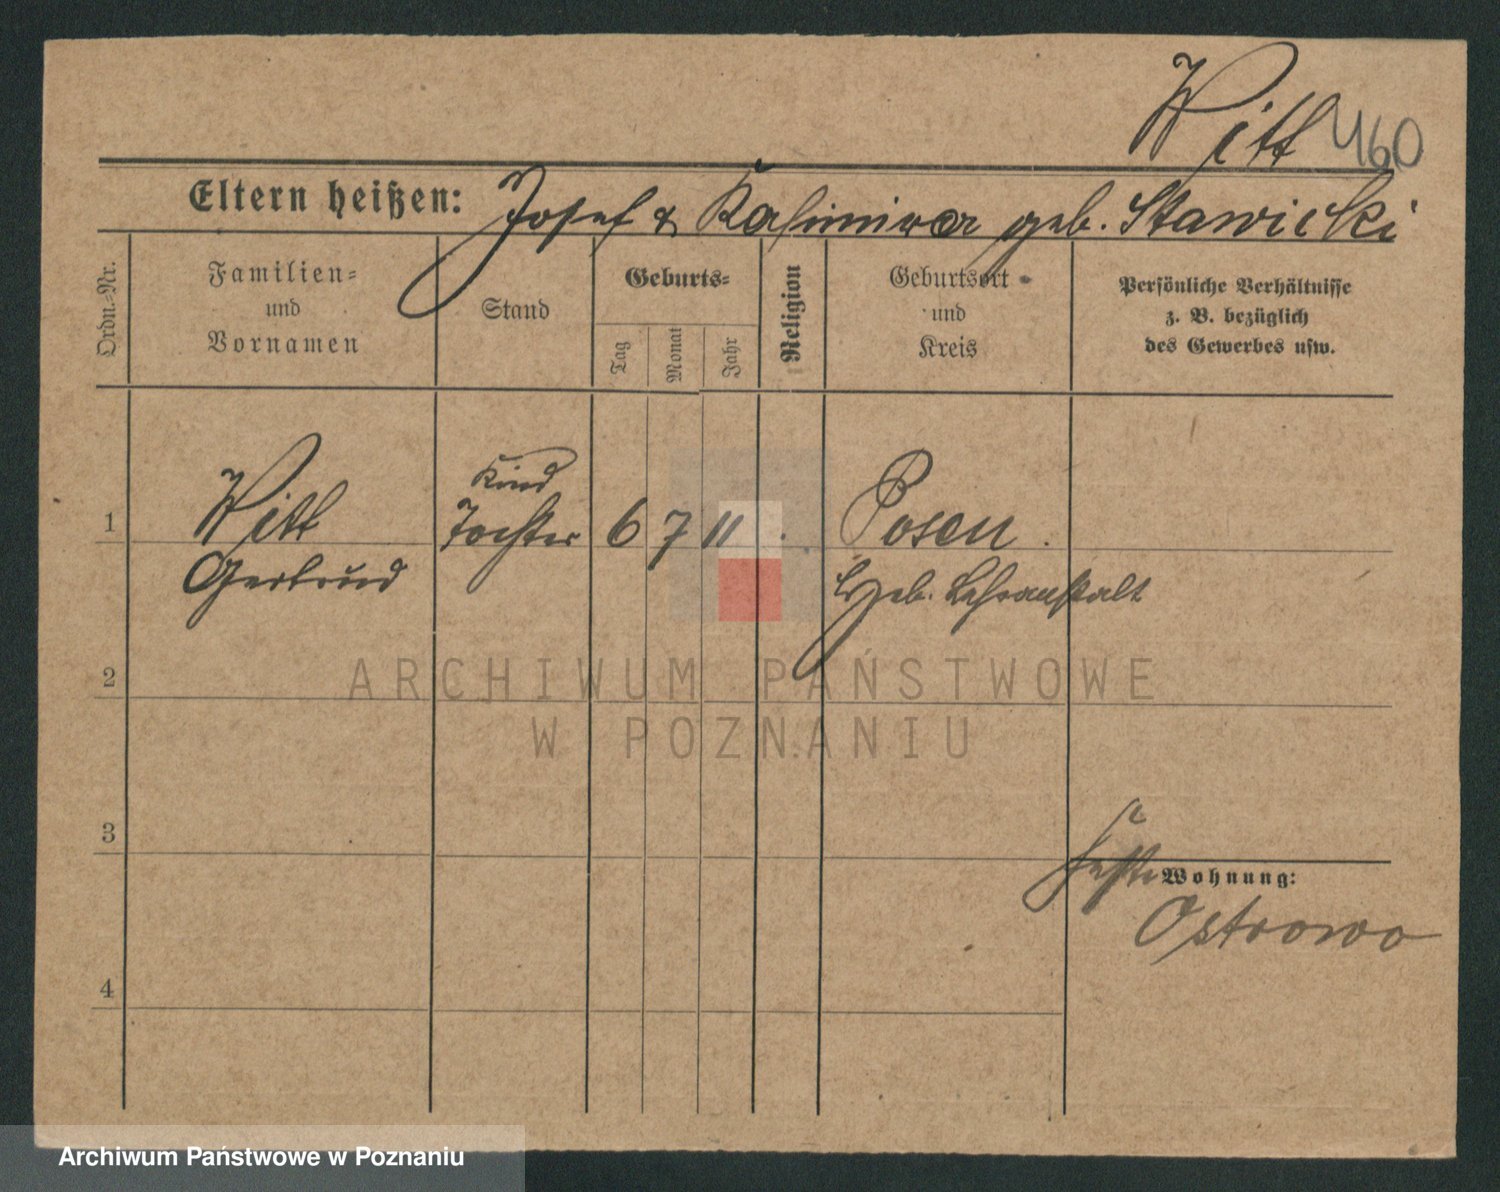 Witt 460
Eltern heißen: Josef & Kasimira geb. Stawicki
Ordn.-Nr.
Familien-
und
Vornamen
Stand
Geburts-
Tag
Monat
Jahr
Religion
Geburtsort
und
Kreis
Persönliche Verhältnisse
z. B. bezüglich
des Gewerbes usw.
Kind
1 Witt Tochter 6 7 11 Posen
Gertrud geb. Lehranstalt
ARCHIWUM PAŃSTWOWE
W POZNANIU
2
3
Wohnung:
Ostrowo
4
Archiwum Państwowe w Poznaniu